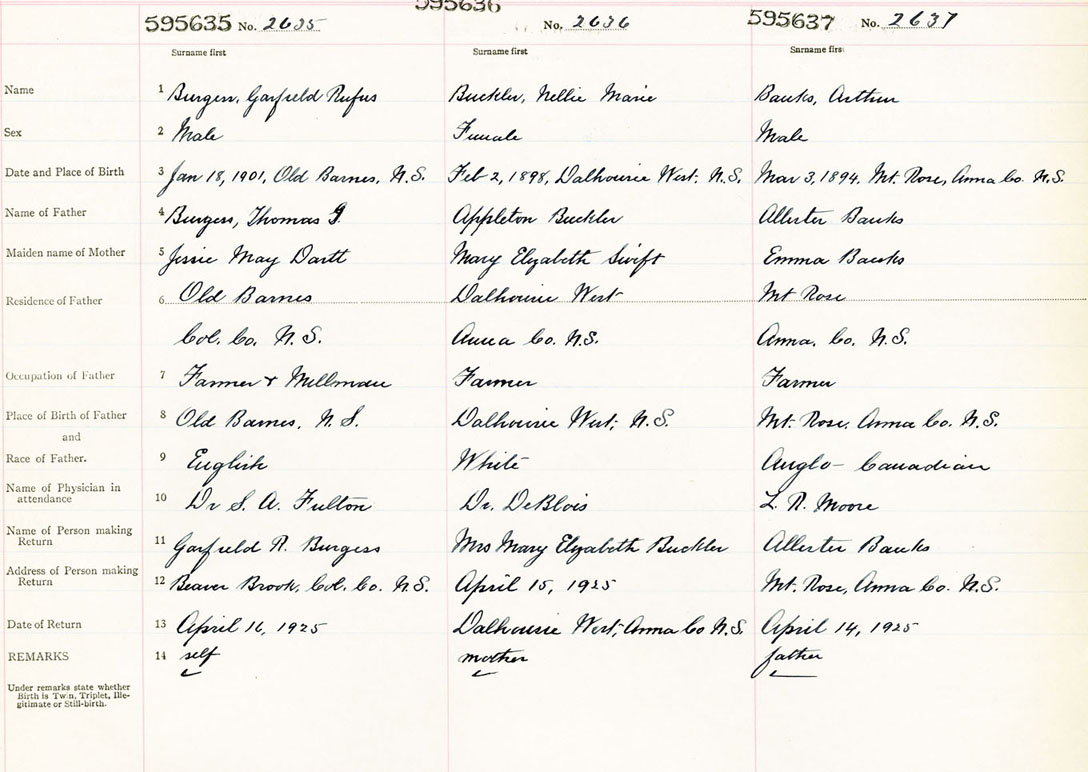 595635 No. 2635 595636 No. 2636 595637 No. 2637
Surname first Surname first Surname first
Name 1 Burgess, Garfield Rufus Buckler, Nellie Marie Banks, Arthur
Sex 2 Male Female Male
Date and Place of Birth 3 Jan 18, 1901, Old Barnes, N.S. Feb 2, 1898, Dalhousie West, N.S. Mar 3, 1894, Mt. Rose, Anna Co. N.S.
Name of Father 4 Burgess, Thomas G. Appleton Buckler Allister Banks
Maiden name of Mother 5 Jessie May Dartt Mary Elizabeth Swift Emma Banks
Residence of Father 6 Old Barnes Dalhousie West Mt Rose
Col. Co. N.S. Anna Co. N.S. Anna. Co. N.S.
Occupation of Father 7 Farmer & Millman Farmer Farmer
Place of Birth of Father 8 Old Barnes, N.S. Dalhousie West, N.S. Mt. Rose, Anna Co. N.S.
and
Race of Father. 9 English White Anglo-Canadian
Name of Physician in
attendance 10 Dr S. A. Fulton Dr. DeBlois L. R. Moore
Name of Person making
Return 11 Garfield R. Burgess Mrs Mary Elizabeth Buckler Allister Banks
Address of Person making
Return 12 Beaver Brook, Col. Co. N.S. April 15, 1925 Mt. Rose, Anna Co. N.S.
Date of Return 13 April 16, 1925 Dalhousie West, Anna Co N.S. April 14, 1925
REMARKS 14 self mother father
Under remarks state whether
Birth is Twin, Triplet, Ille-
gitimate or Still-birth.